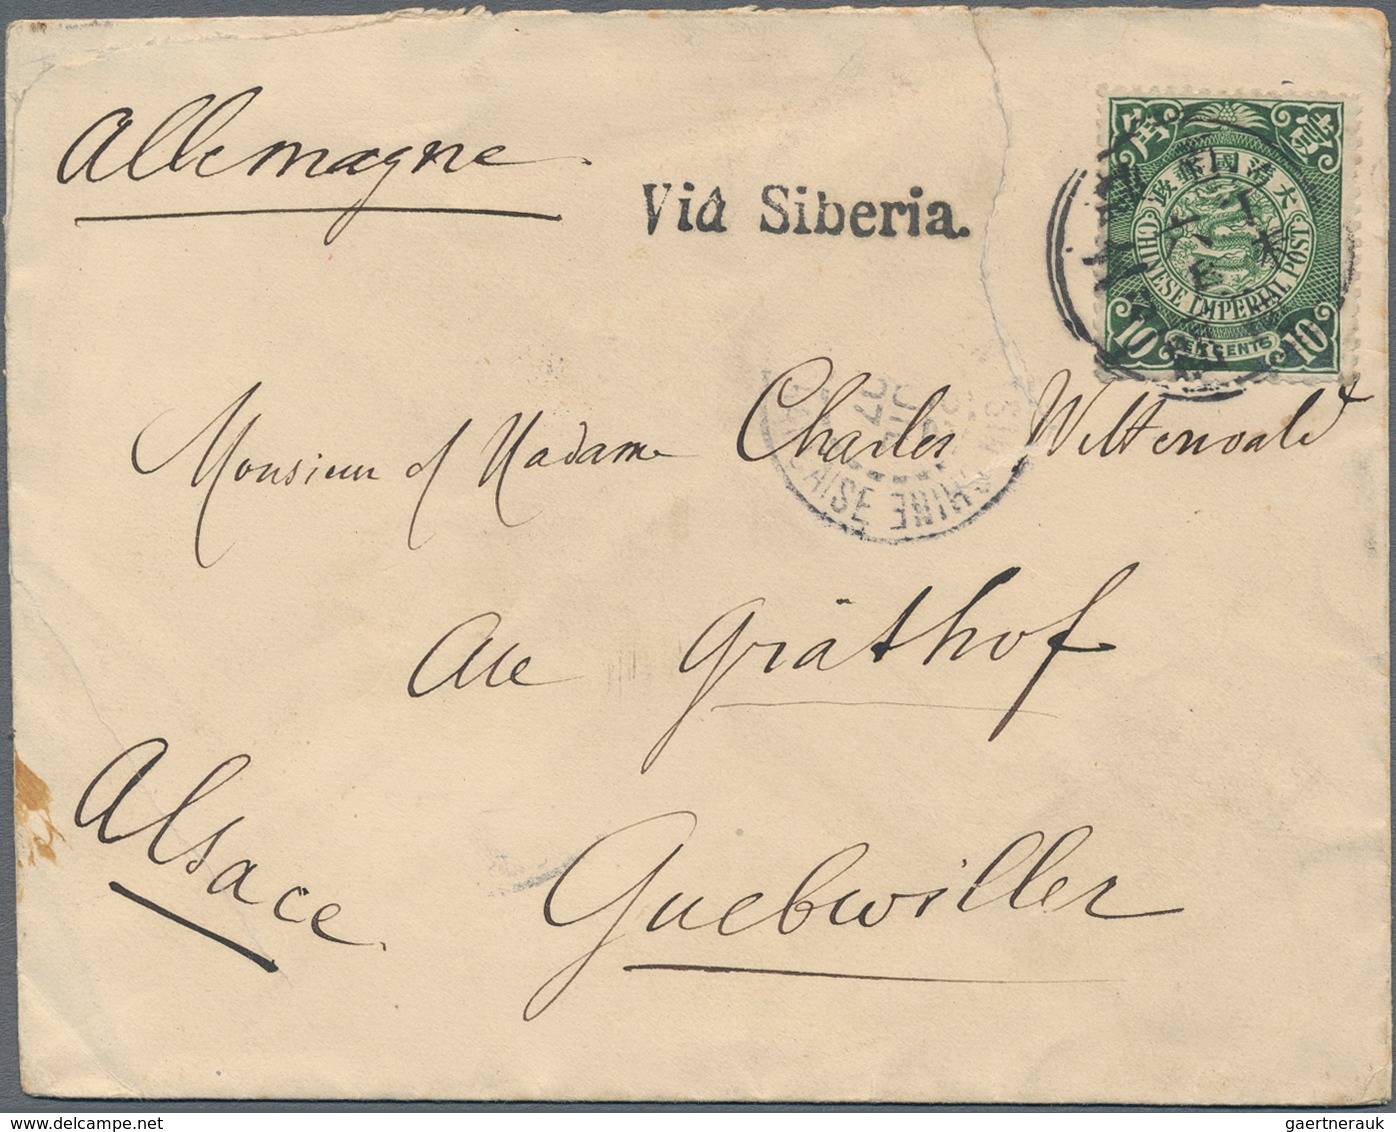 Allemagne
Viâ Siberia.
大清國郵政
CHINESE IMPERIAL POST
10 TEN CENTS 10
Monsieur et Madame Charles
au Gräthof
Alsace
Guebwiller
CHINE
gaertnerauk